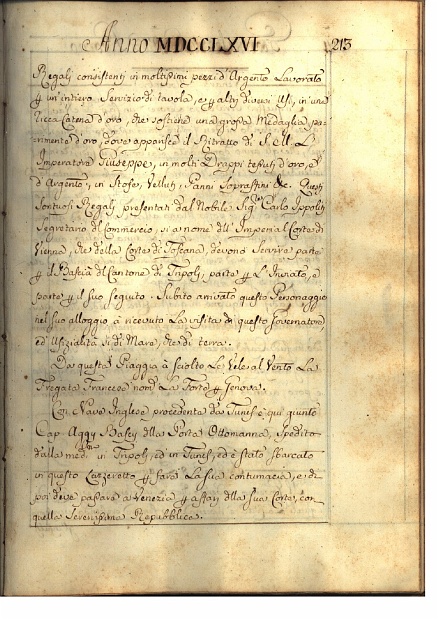 Anno MDCCLXVI 213
Regali consistenti in moltissimi pezzi d'Argento Lavorato
p un'intiero Servizio di tavola, e p altri diversi Usi, in una
ricca Catena d'oro, che sostiene una grossa Medaglia pa-
rimente d'oro, dove apparisce il Ritratto di S. M. L'
Imperatore Giuseppe, in molti Drappi tessuti d'oro, e
d'Argento, in Stofe, Velluti, Panni Soprafini &c. Questi
Sontuosi Regali presentati dal Nobile Sigre Carlo Ippoliti
Segretario del Commercio, si a nome dell'Imperial Corte di
Vienna, che della Corte di Toscana, devono Servire parte
p il Bascià del Cantone di Tripoli, parte p L'Inviato, e
parte p il suo seguito. Subito arrivato questo Personaggio
nel suo alloggio à ricevuto La visita di questo Governatore
ed Ufizialità si di Mare, che di terra.
Da questa Piaggia à sciolto Le Vele al Vento La
Fregata Francese nomta La Forte p Genova.
Con Nave Inglese procedente da Tunis è qui giunto
Cap. Aggy Bascy della Porta Ottomanna, Spedito
dalla medma in Tripoli, ed in Tunis, ed è stato sbarcato
in questo Lazzeretto p farvi La sua contumacia, e di
poi deve passare a Venezia p affari della sua Corte, con
quella Serenissima Repubblica.